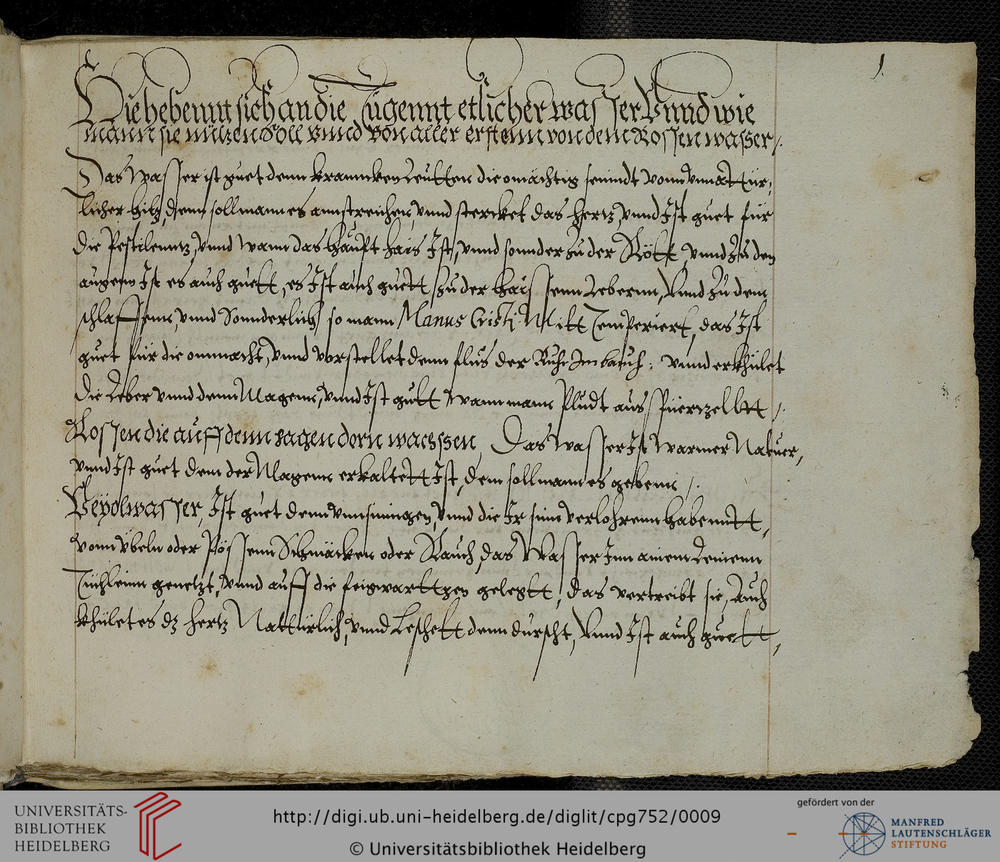 1
Hie hebennt sich an die Tugennt etlicher wasser Vnnd wie
mann sie nutzen Soll vnnd von aller erstenn von dem Rossen wasser /.
Das Wasser ist guet denn krannken Leutten die omächtig seindt vonn vnnattür,
licher hitz, denn soll mann es annstreichen, vnnd sterket das hertz, vnnd Ist guet für
die Pestilenntz, vnnd wann das haupt hais Ist, vnnd sonnder zu der Rött vnnd zu den
augenn Ist es auch guett, es Ist auch guett zu der haissenn Lebernn, Vnnd zu dem
schlaffenn, vnnd Sonnderlich so mann Manus Cristj Mitt Temperiert, das Ist
guet für die ommacht, vnnd verstellet denn flus der Ruhr Im bauch: vnnd erkhület
die Leber vnnd denn Magenn, vnnd Ist gutt Wann mann Pludt aus /.
Rossen die auff denn hagen dorn wachssen, Das Wasser Ist Warmer Natuer,
vnnd Ist guet dem der Magenn erkaltett Ist, dem soll mann es gebenn /.
Veyolwasser, Ist guet denn vnnsinnigen, vnnd die Ir sinn verlohrenn habenntt,
vonn vbeln oder Pössenn Schmäcken oder Rauch, das Wasser Inn ainem Leinenn
Tüchleinn genetzt, vnnd auff die feigwarttzen gelegtt, das vertreibt sie, Auch
khület es dz hertz Nattürlich, vnnd Leschett denn durscht, Vnnd Ist auch guett,
UNIVERSITÄTS-
BIBLIOTHEK
HEIDELBERG
http://digi.ub.uni-heidelberg.de/diglit/cpg752/0009
© Universitätsbibliothek Heidelberg
gefördert von der
MANFRED
LAUTENSCHLÄGER
STIFTUNG